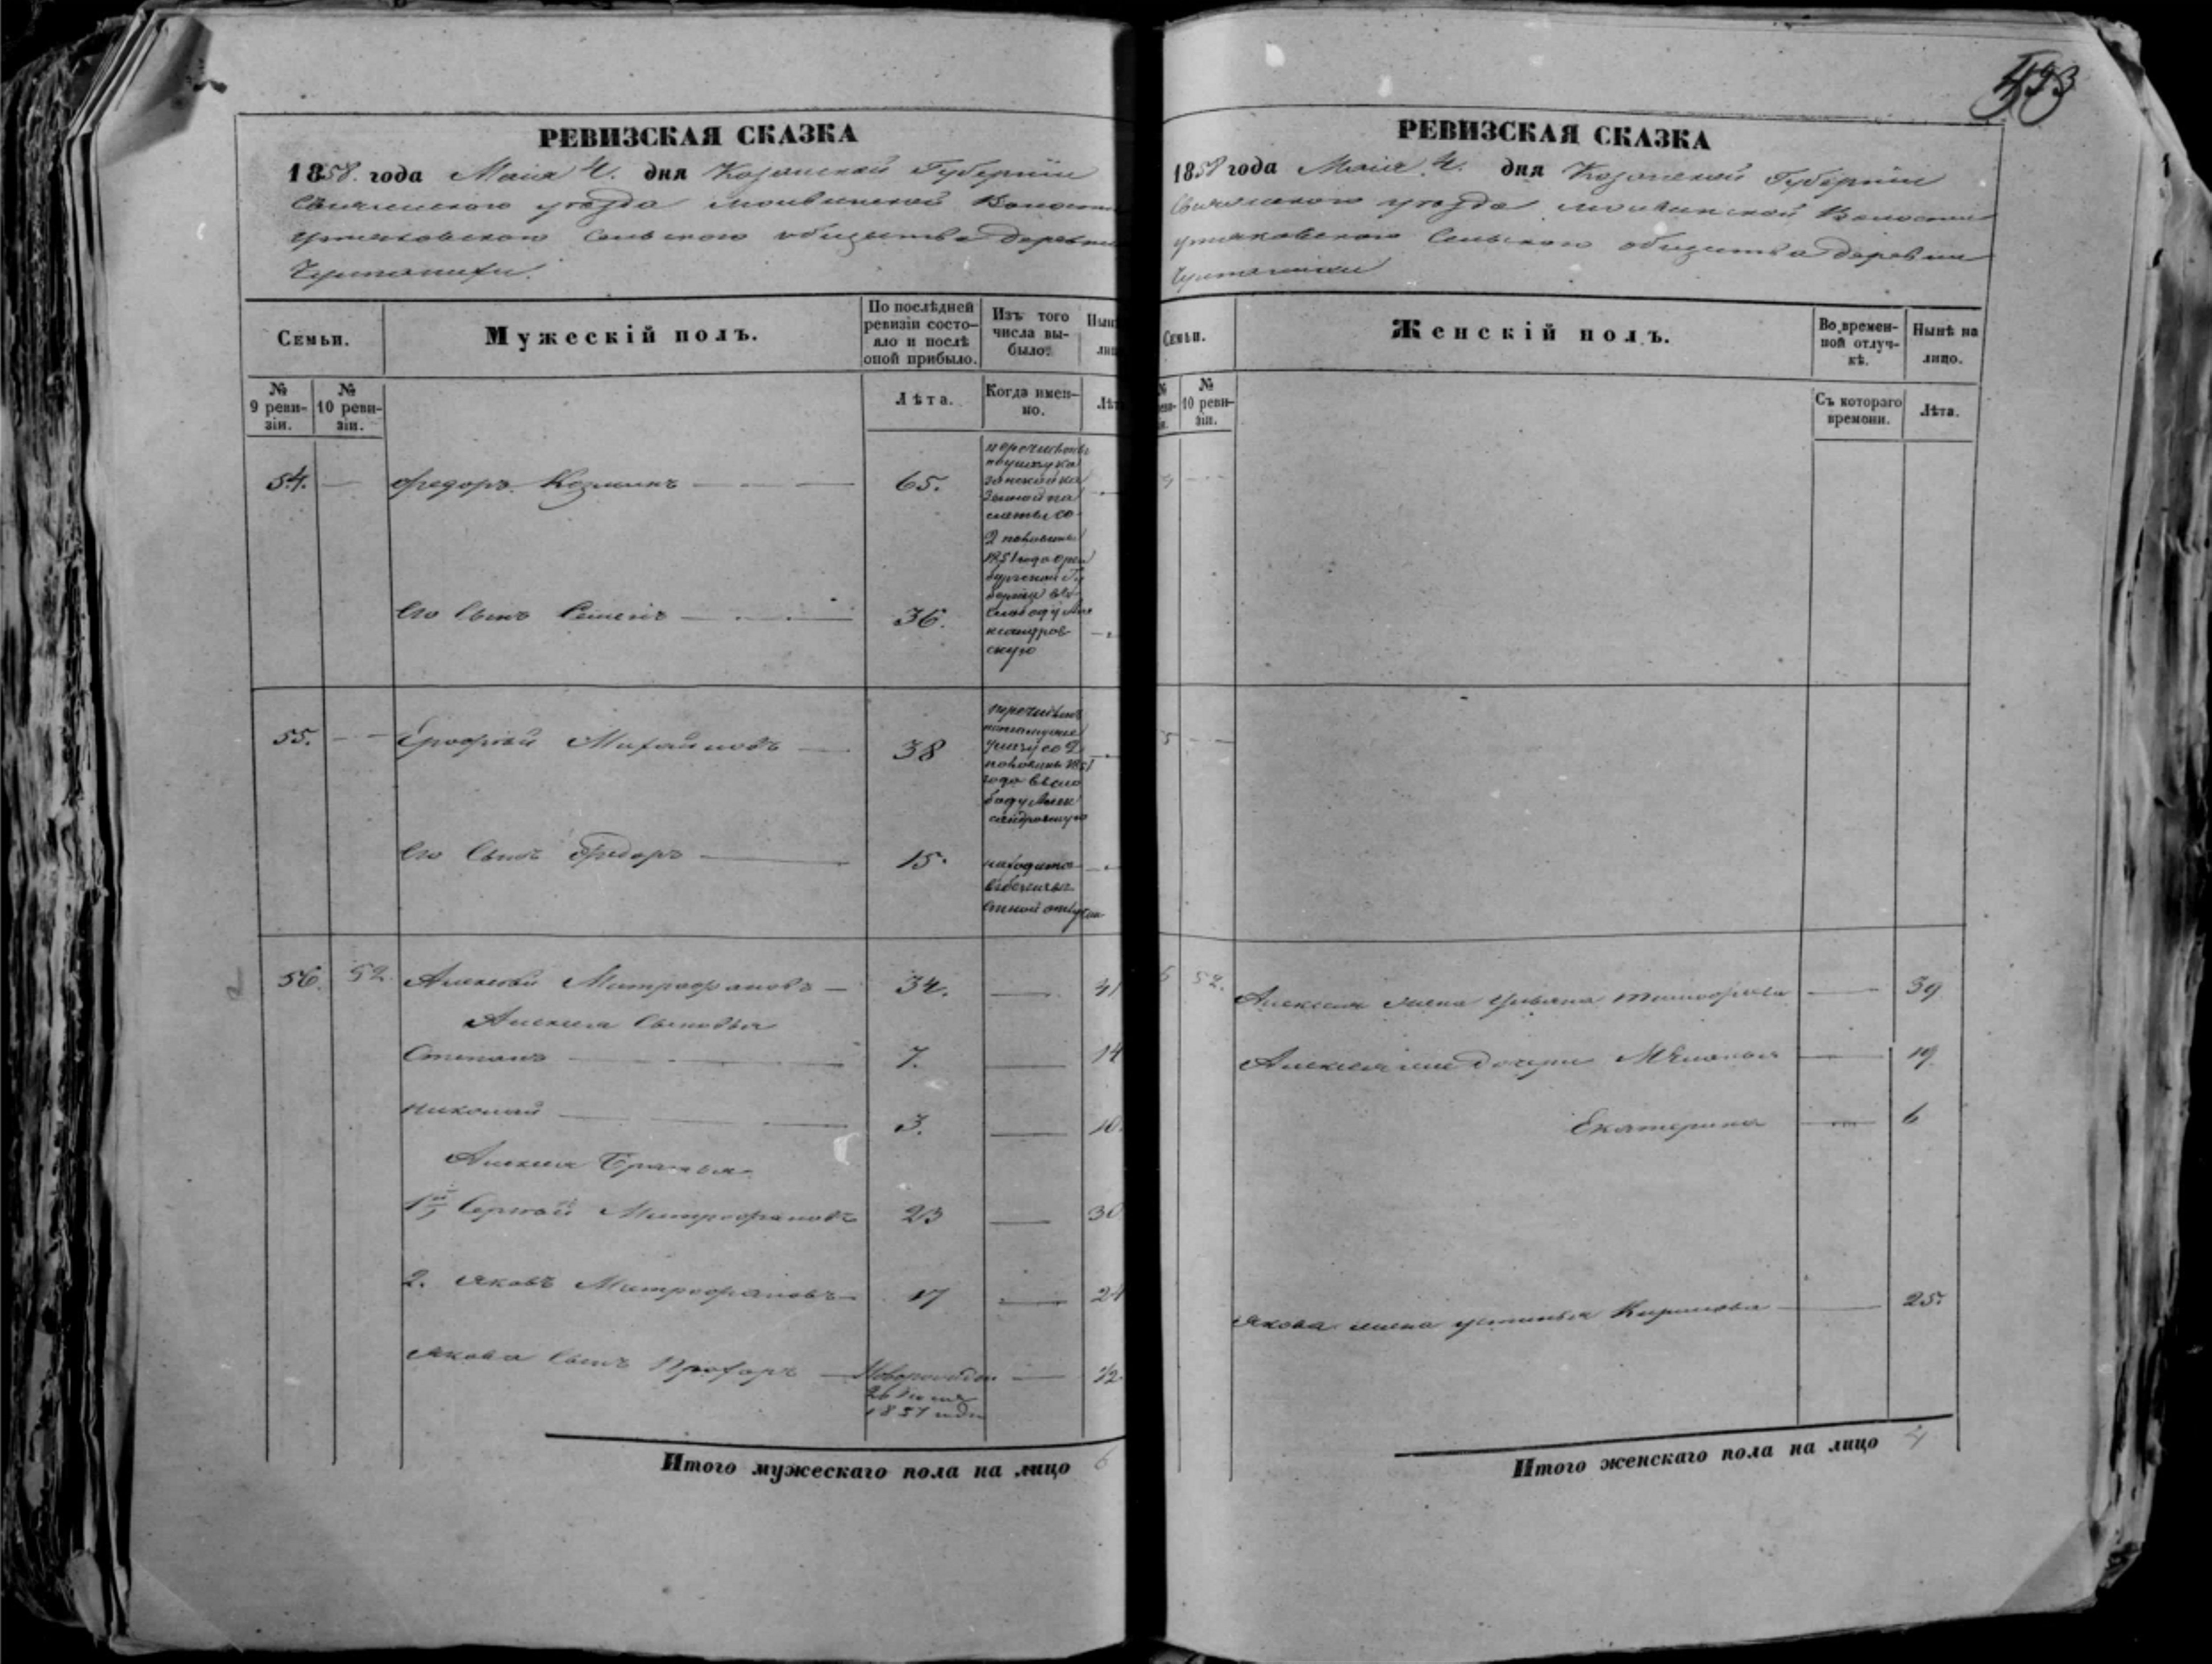 433
РЕВИЗСКАЯ СКАЗКА
1858 года Маія 4. дня Казанской Губерніи
Свіяжскаго уѣзда Волости
Сельскаго общества деревни
Семьи.
Мужескій полъ.
По послѣдней ревизіи состо-
яло и послѣ
оной прибыло.
Изъ того
числа вы-
было.
№
9 реви-
зіи.
№
10 реви-
зіи.
Лѣта.
Когда имен-
но.
54. Федоръ Козминъ 65.
перечисленъ
по указу ка
занской ка
зенной па
латы со
2 половины
1851 года Орен
бургской Гу
берніи въ
Слободу Але
ксандров
скую
Его Сынъ Семенъ 36.
55. Ерофѣй Михайловъ 38
перечисленъ
указу со 2
половины 1851
года въ сло
боду Алек
сандровскую
Его Сынъ Федоръ 15.
находится
въ безъизвѣ
стной отлучке
56. 52. Алексѣй Митрофановъ 34. 41
Алексея Сыновья
Степанъ 7. 14
Николай 3. 10.
Алексея Братья
1й Сергѣй Митрофановъ 23 30
2. Яковъ Митрофановъ 17 24
Якова Сынъ Прохоръ Новорожден 1/2
1857 года
Итого мужескаго пола на лицо 6
РЕВИЗСКАЯ СКАЗКА
1858 года Маія 4. дня Казанской Губерніи
Свіяжскаго уѣзда Волости
Сельскаго общества деревни
Семьи.
Женскій полъ.
Во времен-
ной отлуч-
кѣ.
Нынѣ на
лицо.
№
10 реви-
зіи.
Съ котораго
времени.
Лѣта.
52. Алексея жена Ульяна Тимофѣева 39
Алексея дочери Меланья 19.
Екатерина 6
Якова жена Устинья Кирилова 25.
Итого женскаго пола на лицо 4